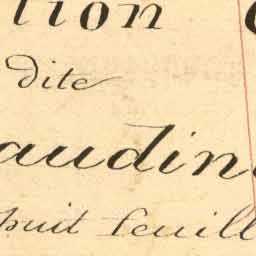 tion
dite
audin
huit feuill